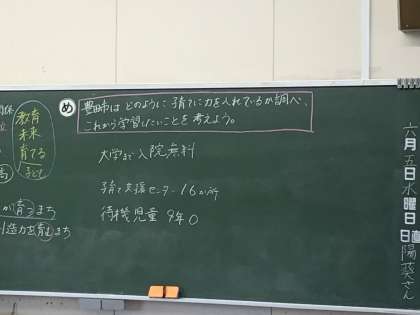 め
豊田市は どのように 子育てに力を入れているか調べ、
これから学習したいことを 考えよう。
大学まで入院無料
子育て支援センター 16か所
待機児童 9年0
教育
未来
育てる
子ども
が育つまち
造力を育むまち
六月五日水曜日
日直
陽葵さん